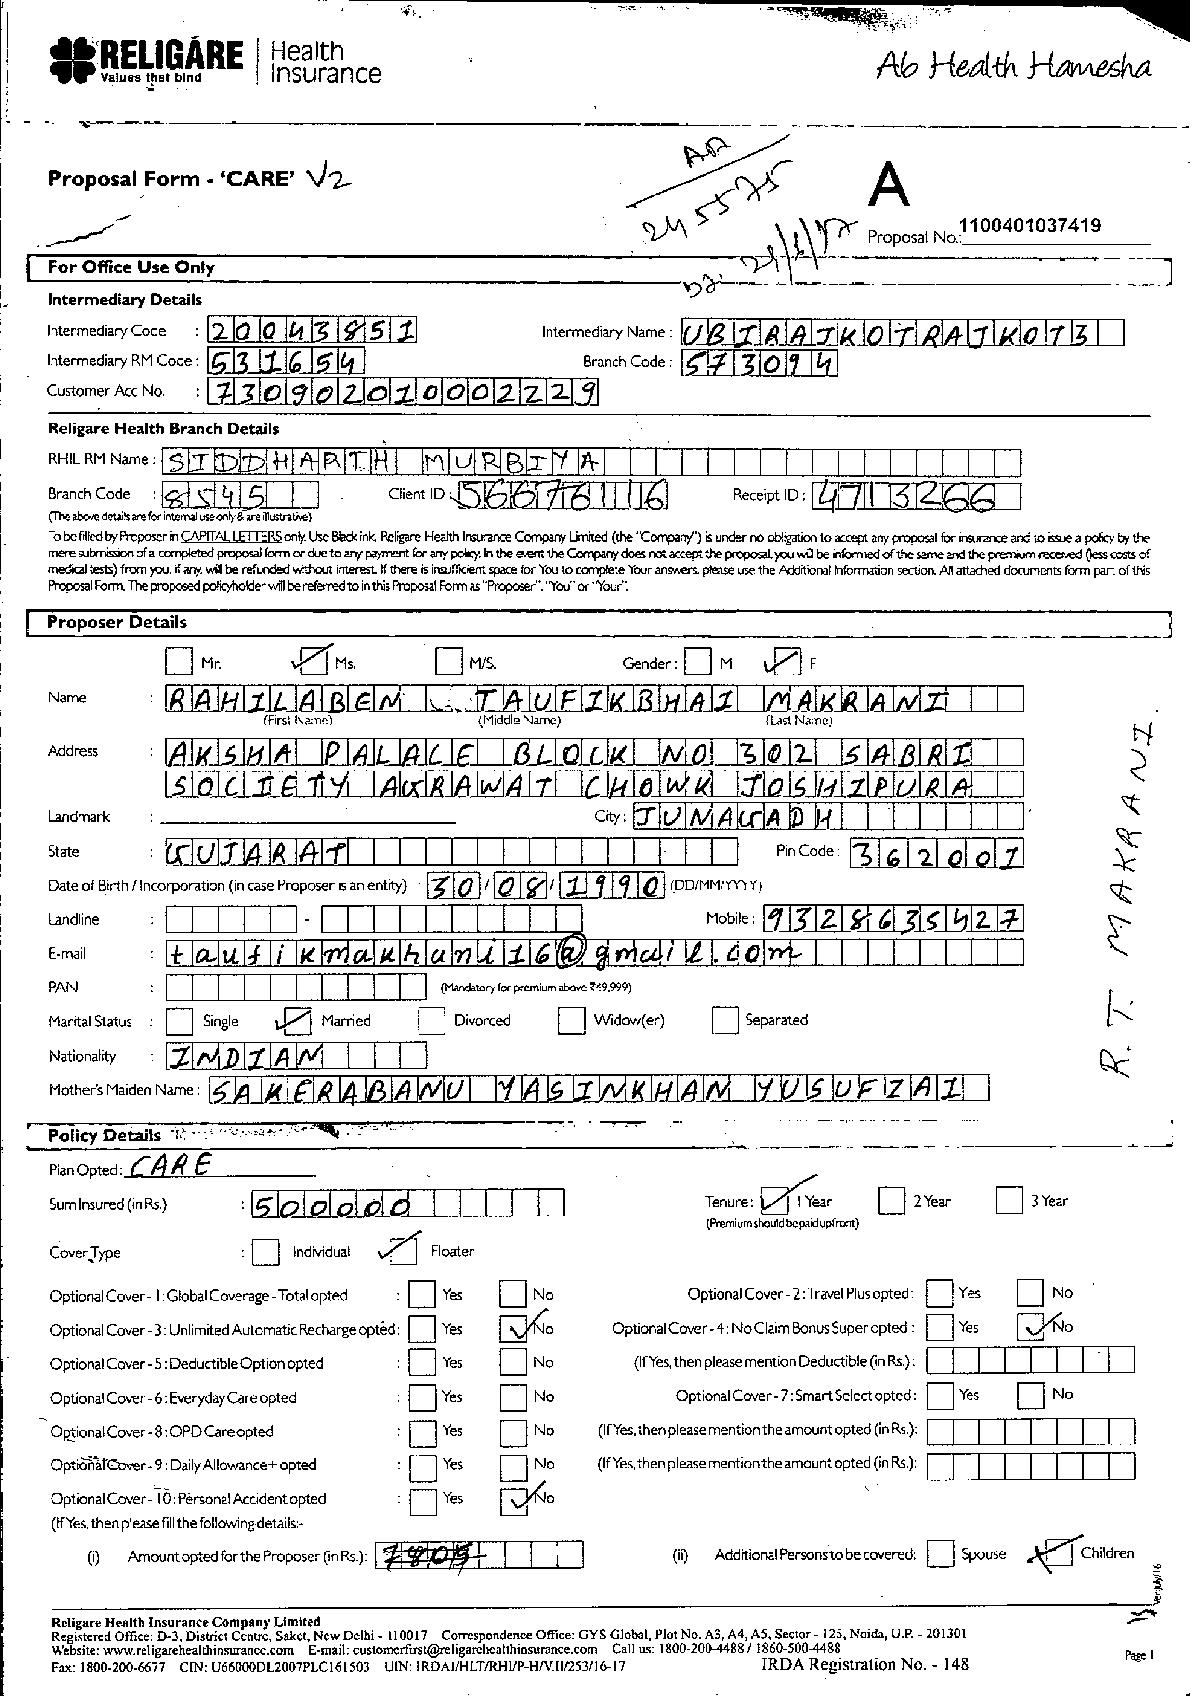 RELIGARE Health Insurance
Values that bind
Ab Health Hamesha
Proposal Form - 'CARE' V2
AP
245575
A
Proposal No.: 1100401037419
For Office Use Only
Intermediary Details
Intermediary Code : 20043851 Intermediary Name : UBIRAJKOTRAJKOT3
Intermediary RM Code : 531654 Branch Code : 573094
Customer Acc No. : 730902010002229
Religare Health Branch Details
RHIL RM Name : SIDDHARTH MURBIYA
Branch Code : 8545 Client ID : 56676116 Receipt ID : 4713266
(The above details are for internal use only & are illustrative)
To be filled by Proposer in CAPITAL LETTERS only. Use Black ink. Religare Health Insurance Company Limited (the "Company") is under no obligation to accept any proposal for insurance and to issue a policy by the
mere submission of a completed proposal form or due to any payment for any policy. In the event the Company does not accept the proposal, you will be informed of the same and the premium received (less costs of
medical tests) from you, if any, will be refunded without interest. If there is insufficient space for You to complete Your answers, please use the Additional Information section. All attached documents form part of this
Proposal Form. The proposed policyholder will be referred to in this Proposal Form as "Proposer", "You" or "Your".
Proposer Details
Mr. Ms. M/S. Gender : M F
Name : RAHILABEN TAUFIKBHAI MAKRANI
(First Name) (Middle Name) (Last Name)
Address : AKSHA PALACE BLOCK NO 302 SABRI
SOCIETY AGRAWAT CHOWK JOSHIPURA
Landmark : City : JUNAGADH
State : GUJARAT Pin Code : 362001
Date of Birth / Incorporation (in case Proposer is an entity) : 30/08/1990 (DD/MM/YYYY)
Landline : - Mobile : 9328635427
E-mail : taufikmakhani16@gmail.com
PAN : (Mandatory for premium above ₹49,999)
Marital Status : Single Married Divorced Widow(er) Separated
Nationality : INDIAN
Mother's Maiden Name : SAKERABANU YASINKHAN YUSUFZAI
R. T. MAKRANI
Policy Details
Plan Opted : CARE
Sum Insured (in Rs.) : 500000 Tenure : 1 Year 2 Year 3 Year
(Premium should be paid upfront)
Cover Type : Individual Floater
Optional Cover - 1 : Global Coverage - Total opted : Yes No Optional Cover - 2 : Travel Plus opted : Yes No
Optional Cover - 3 : Unlimited Automatic Recharge opted : Yes No Optional Cover - 4 : No Claim Bonus Super opted : Yes No
Optional Cover - 5 : Deductible Option opted : Yes No (If Yes, then please mention Deductible (in Rs.) :
Optional Cover - 6 : Everyday Care opted : Yes No Optional Cover - 7 : Smart Select opted : Yes No
Optional Cover - 8 : OPD Care opted : Yes No (If Yes, then please mention the amount opted (in Rs.) :
Optional Cover - 9 : Daily Allowance+ opted : Yes No (If Yes, then please mention the amount opted (in Rs.) :
Optional Cover - 10 : Personal Accident opted : Yes No
(If Yes, then please fill the following details:-
(i) Amount opted for the Proposer (in Rs.) : (ii) Additional Persons to be covered : Spouse Children
Ver: July/16
Religare Health Insurance Company Limited
Registered Office: D-3, District Centre, Saket, New Delhi - 110017 Correspondence Office: GYS Global, Plot No. A3, A4, A5, Sector - 125, Noida, U.P. - 201301
Website: www.religarehealthinsurance.com E-mail: customerfirst@religarehealthinsurance.com Call us: 1800-200-4488 / 1860-500-4488
Fax: 1800-200-6677 CIN: U66000DL2007PLC161503 UIN: IRDAI/HLT/RHI/P-H/V.II/253/16-17 IRDA Registration No. - 148
Page 1